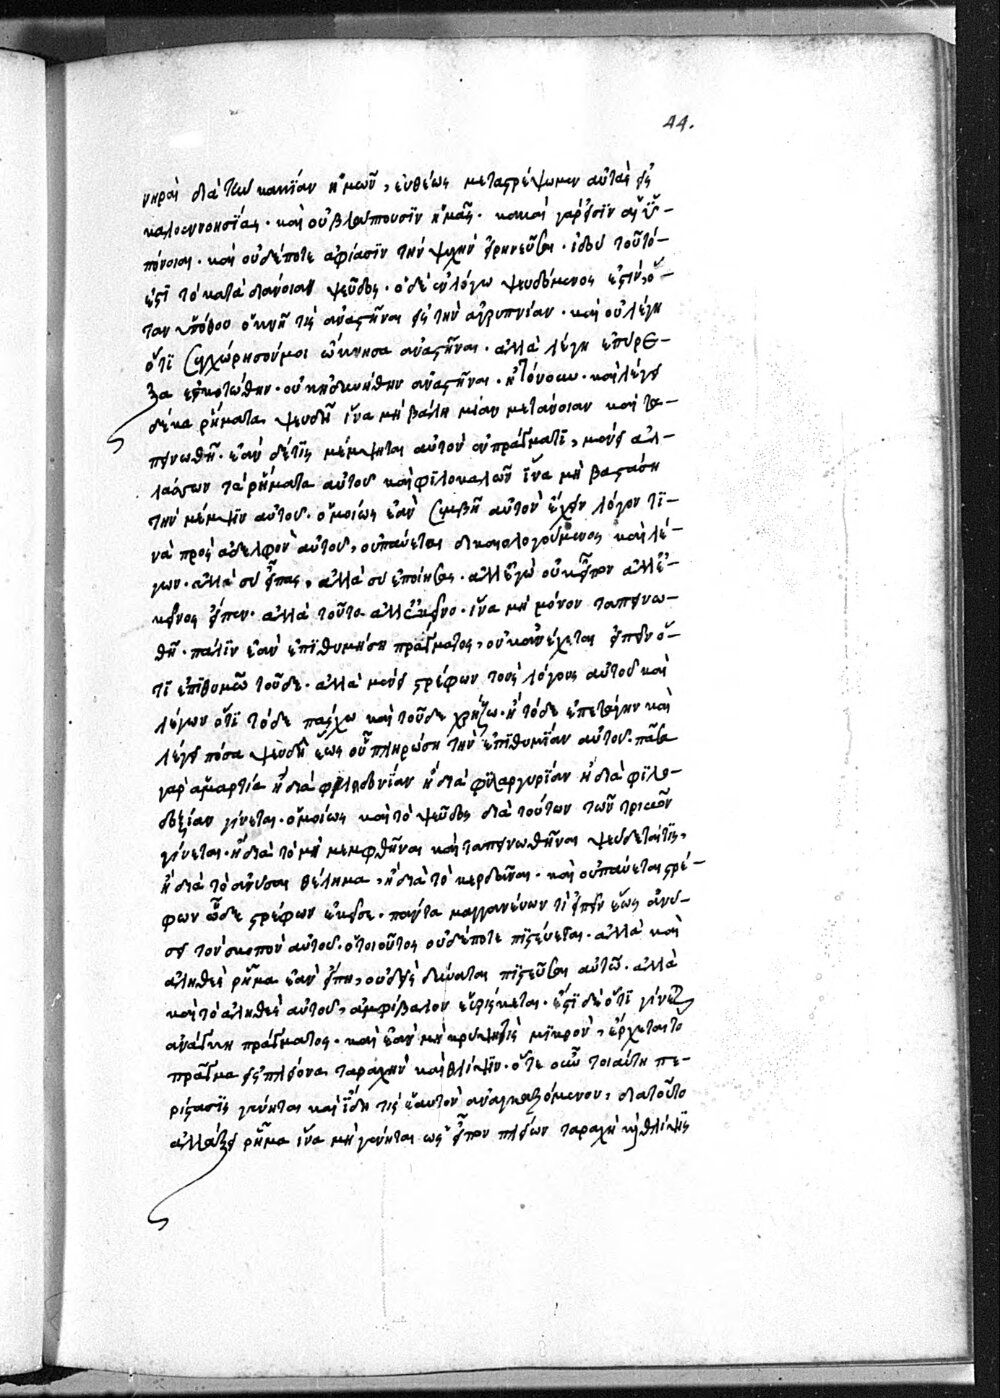 44.
νηραὶ διὰ τὴν κακίαν ἡμῶν, εὐθέως μεταστρέψωμεν αὐτὰς εἰς
καλοεννοησίας. καὶ οὐ βλάπτουσιν ἡμᾶς. κακαὶ γάρ εἰσιν αἱ ὑ-
πόνοιαι. καὶ οὐδέποτε ἀφίασιν τὴν ψυχὴν εἰρηνεῦσαι. ἰδοὺ τοῦτό-
ἐστι τὸ κατὰ διάνοιαν ψεῦδος. ὁ δὲ ἐν λόγω ψευδόμενος ἐστὶν, ὅ-
ταν ὑπόθου ὀκνῆ τίς ἀναστῆναι εἰς τὴν ἀγρυπνίαν. καὶ οὐ λέγη
ὅτι συγχώρησόν μοι ὤκνησα ἀναστῆναι. ἀλλὰ λέγη ἐπύρε-
ξα ἐσκοτώθην. οὐκ ἠδυνήθην ἀναστῆναι. ἠτόνουν. καὶ λέγει
δέκα ῥήματα ψευδῆ ἵνα μὴ βάλη μίαν μετάνοιαν καὶ τα-
πεινωθῆ. ἐὰν δέ τις μέμψηται αὐτὸν ἐν πράγματι, μένει ἀλ-
λάσσων τὰ ῥήματα αὐτοῦ καὶ φιλοκαλῶν ἵνα μὴ βαστάση
τὴν μέμψιν αὐτοῦ. ὁμοίως ἐὰν συμβῆ αὐτὸν ἔχειν λόγον τι-
νὰ πρὸς ἀδελφὸν αὐτοῦ, οὐ παύεται δικαιολογούμενος καὶ λέ-
γων. ἀλλὰ σὺ εἶπας, ἀλλὰ σὺ ἐποίησας. ἀλλ' ἐγὼ οὐκ εἶπον ἀλλ' ἐ-
κεῖνος εἶπεν. ἀλλὰ τοῦτο ἀλλ' ἐκεῖνο. ἵνα μὴ μόνον ταπεινω-
θῆ. πάλιν ἐὰν ἐπιθυμήση πράγματος, οὐκ ἀνέχεται εἰπεῖν ὅ-
τι ἐπιθυμῶ τοῦδε. ἀλλὰ μένει στρέφων τοὺς λόγους αὐτοῦ καὶ
λέγων ὅτι τόδε πάσχω καὶ τοῦδε χρήζω. ἢ τόδε ἐπετάγην καὶ
λέγει πόσα ψευδῆ ἕως οὗ πληρώση τὴν ἐπιθυμίαν αὐτοῦ. πᾶσα
γὰρ ἁμαρτία ἢ διὰ φιληδονίαν ἢ διὰ φιλαργυρίαν ἢ διὰ φιλο-
δοξίαν γίνεται. ὁμοίως καὶ τὸ ψεῦδος διὰ τούτων τῶν τριῶν
γίνεται. ἢ διὰ τὸ μὴ μεμφθῆναι καὶ ταπεινωθῆναι ψεύδεταί τις,
ἢ διὰ τὸ ἀνύσαι θέλημα, ἢ διὰ τὸ κερδᾶναι. καὶ οὐ παύεται στρέ-
φων ὧδε στρέφων ἐκεῖσε. πάντα μαγγανεύων τί εἴπειν ἕως ἀνύ-
σει τὸν σκοπὸν αὐτοῦ. ὁ τοιοῦτος οὐδέποτε πιστεύεται. ἀλλὰ καὶ
ἀληθὲς ῥῆμα ἐὰν εἴπη, οὐδεὶς δύναται πιστεῦσαι αὐτῶ. ἀλλὰ
καὶ τὸ ἀληθὲς αὐτοῦ, ἀμφίβαλον εὑρίσκεται. ἔστι δὲ ὅτι γίνεται
ἀνάγκη πράγματος. καὶ ἐὰν μὴ κρύψη τίς μικρὸν, ἔρχεται τὸ
πρᾶγμα εἰς πλείονα ταραχὴν καὶ θλίψιν. ὅτε οὖν τοιαύτη πε-
ρίστασις γένηται καὶ ἴδη τίς ἑαυτὸν ἀναγκαζόμενον, διὰ τοῦτο
ἀλλάξει ῥῆμα ἵνα μὴ γένηται ὡς εἶπον πλείων ταραχὴ ἢ θλίψις